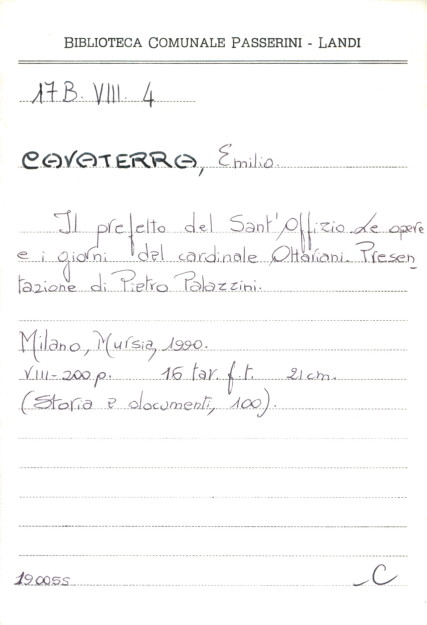 BIBLIOTECA COMUNALE PASSERINI - LANDI
17B. VIII. 4
CAVATERRA, Emilio.
Il prefetto del Sant'Offizio. Le opere
e i giorni del cardinale Ottaviani. Presen
tazione di Pietro Palazzini.
Milano, Mursia, 1990.
VIII-200 p. 16 tav. f. t. 21 cm.
(Storia e documenti, 100).
190055 C